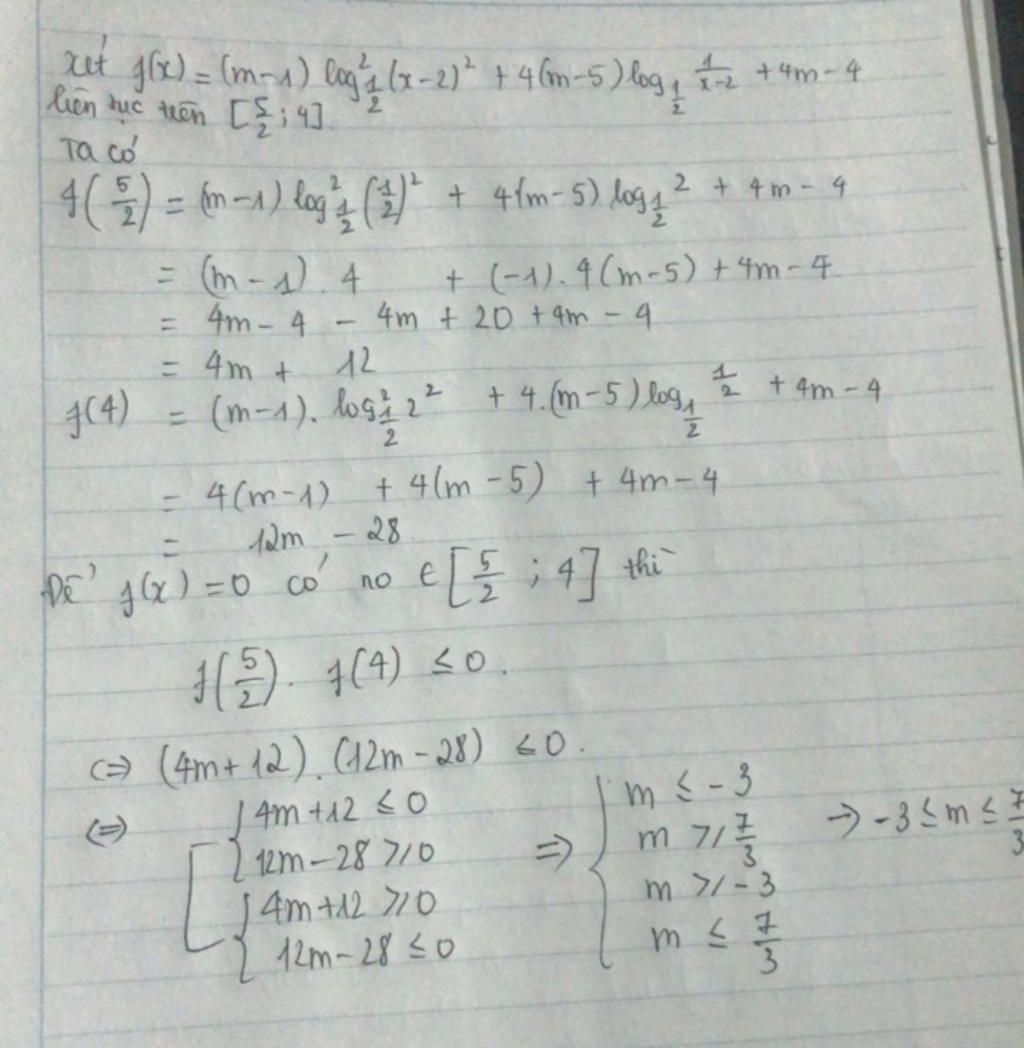 xét f(x) = (m-1) log²_{1/2} (x-2)² + 4(m-5) log_{1/2} 1/(x-2) + 4m - 4
liên tục trên [5/2 ; 4]
Ta có
f(5/2) = (m-1) log²_{1/2} (1/2)² + 4(m-5) log_{1/2} 2 + 4m - 4
= (m-1) . 4 + (-1) . 4(m-5) + 4m - 4
= 4m - 4 - 4m + 20 + 4m - 4
= 4m + 12
f(4) = (m-1) . log²_{1/2} 2² + 4.(m-5) log_{1/2} 1/2 + 4m - 4
= 4(m-1) + 4(m-5) + 4m - 4
= 12m - 28
Để f(x) = 0 có no ∈ [5/2 ; 4] thì
f(5/2) . f(4) ≤ 0.
<=> (4m+12) . (12m-28) ≤ 0.
<=> [ { 4m+12 ≤ 0 => { m ≤ -3 -> -3 ≤ m ≤ 7/3
12m-28 ≥ 0 m ≥ 7/3
{ 4m+12 ≥ 0 m ≥ -3
12m-28 ≤ 0 m ≤ 7/3